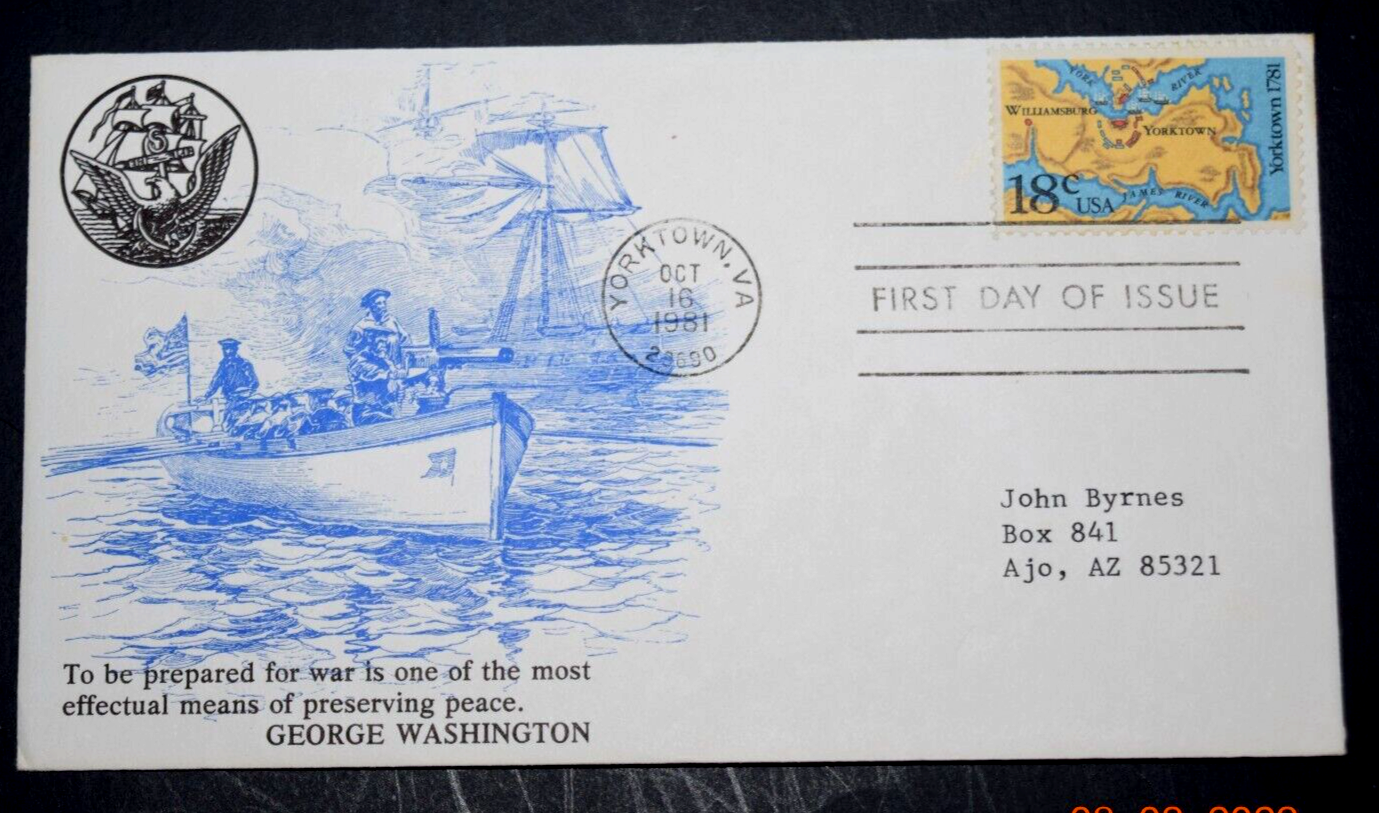 YORK RIVER
WILLIAMSBURG
YORKTOWN
Yorktown 1781
18c USA
JAMES RIVER
YORKTOWN, VA
OCT
16
1981
23690
FIRST DAY OF ISSUE
John Byrnes
Box 841
Ajo, AZ 85321
To be prepared for war is one of the most
effectual means of preserving peace.
GEORGE WASHINGTON